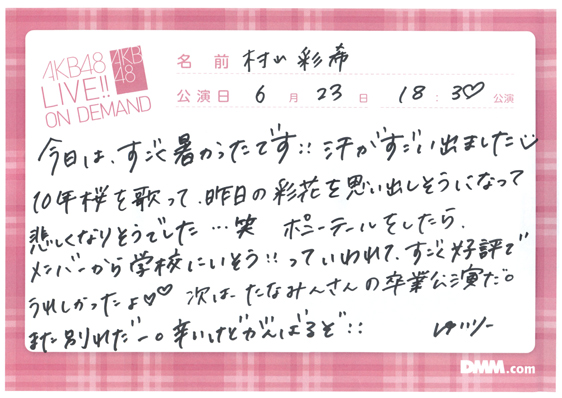 AKB48
LIVE!!
ON DEMAND
AKB
48
名前 村山彩希
公演日 6月23日 18:30公演
今日は、すごく暑かったです!! 汗がすごい出ました
10年桜を歌って、昨日の彩花を思い出しそうになって
悲しくなりそうでした…笑 ポニーテールをしたら、
メンバーから学校にいそう!!っていわれて、すごく好評で
うれしかったよ♡♡ 次はたなみんさんの卒業公演だ。
また別れだー。辛いけどがんばるぞ!!
ゆいりー
DMM.com